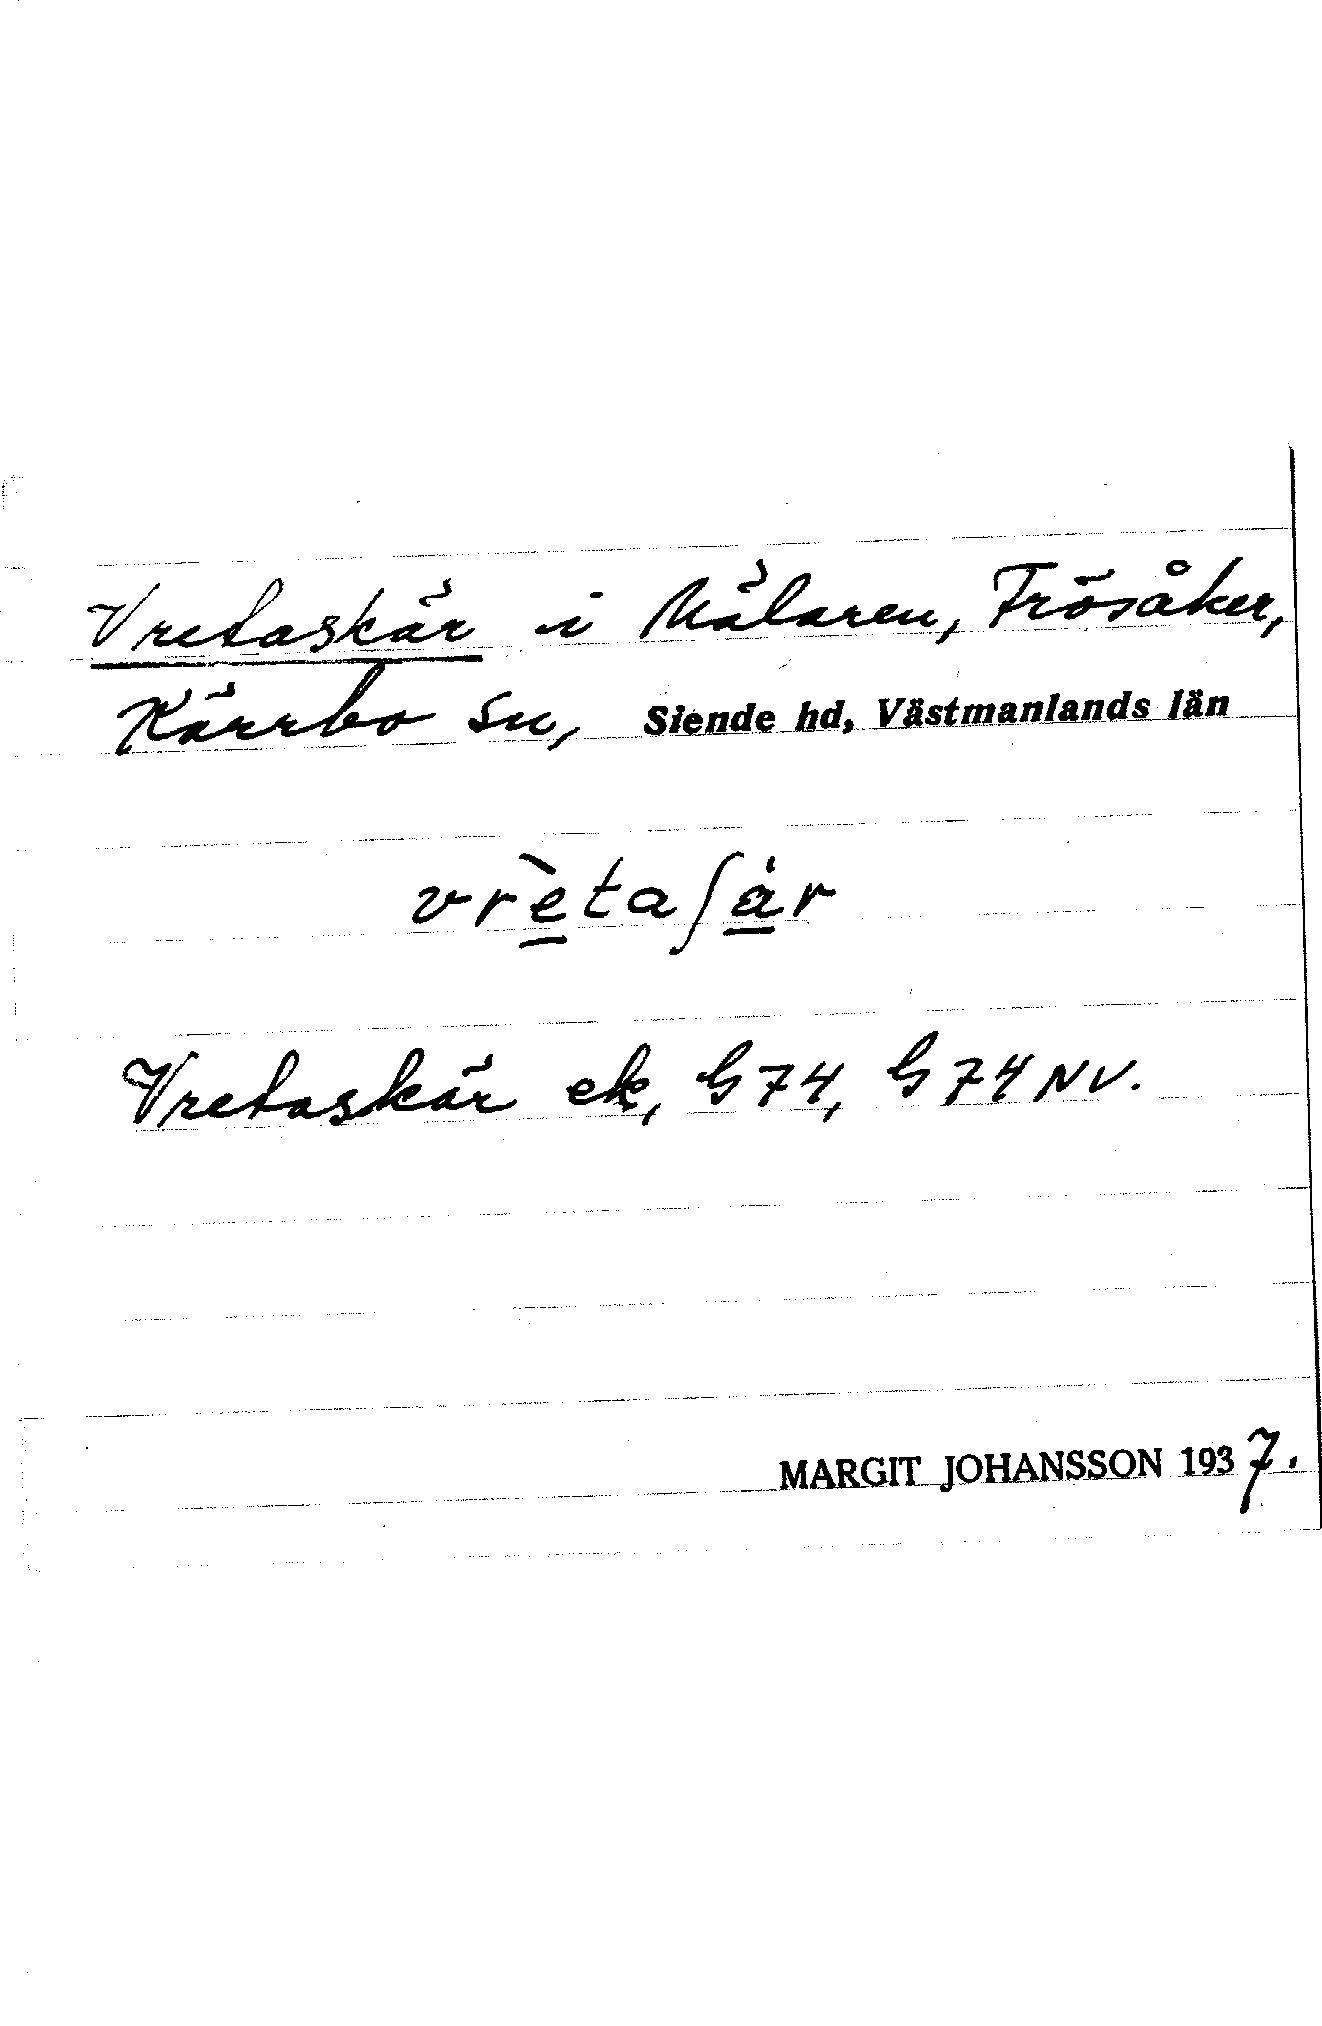 Vretaskär i Mälaren, Frösåker,
Kärrbo sn, Siende hd, Västmanlands län
vrètaʃár
Vretaskär ek, G 74, G 74 NV.
MARGIT JOHANSSON 1937.